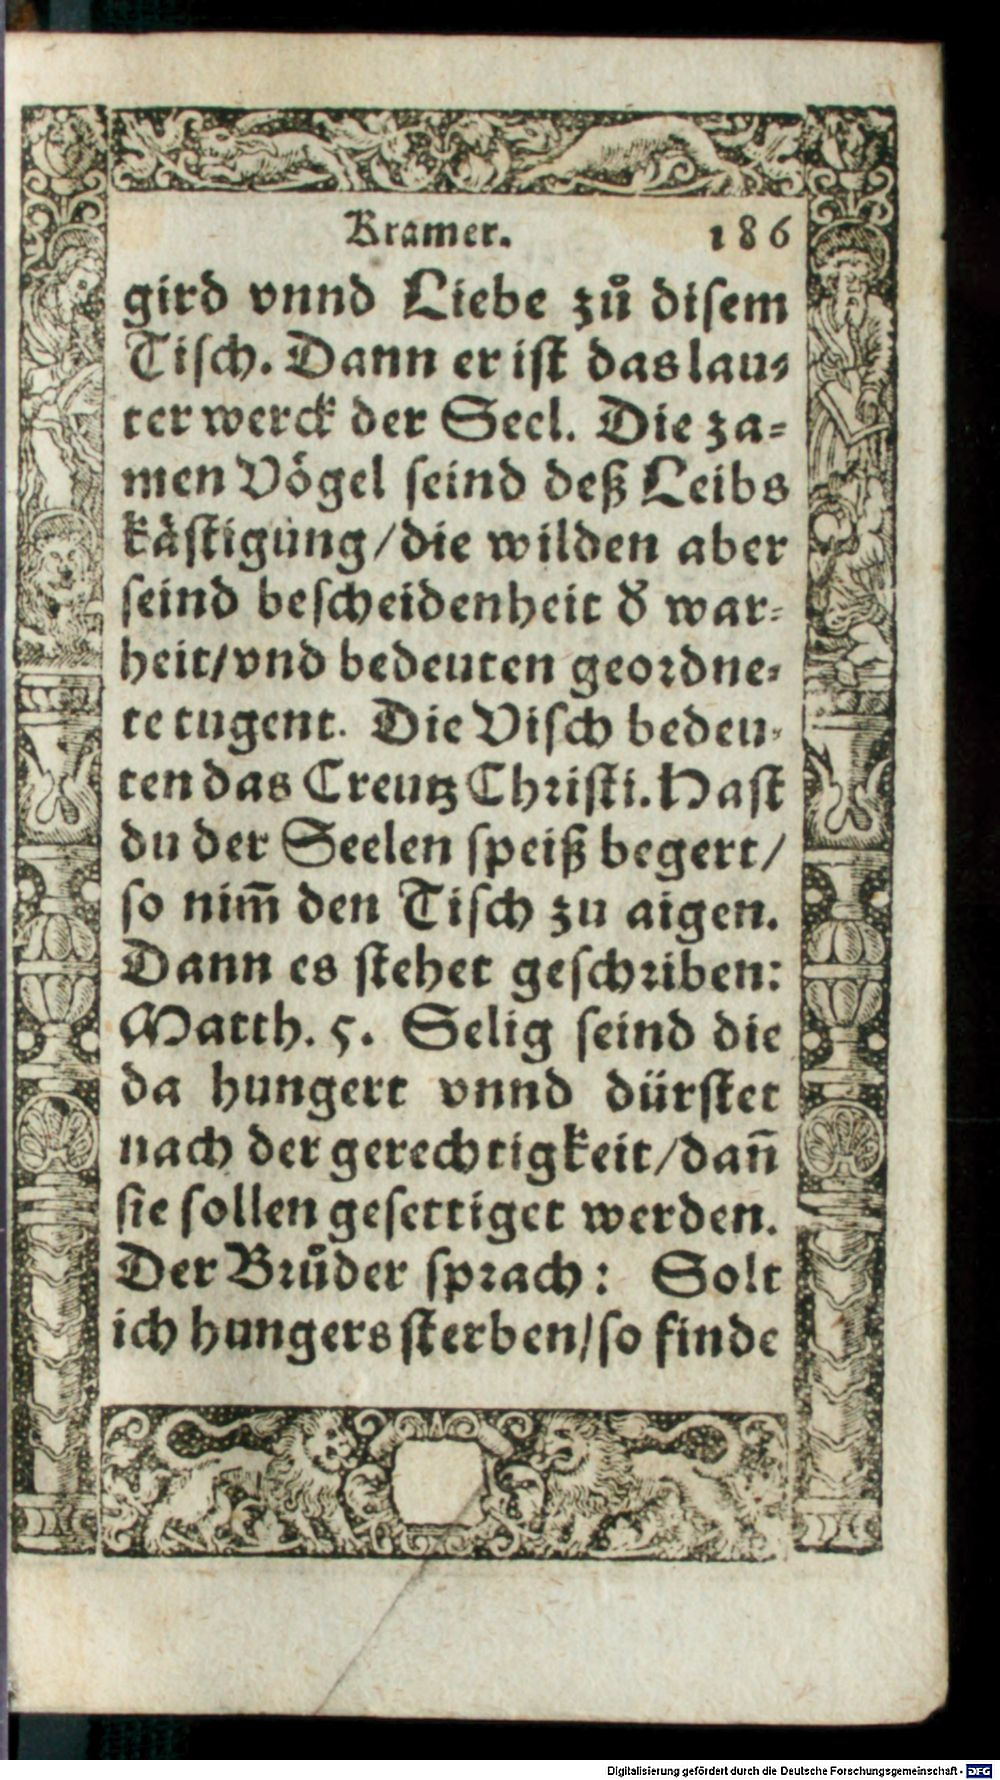 Kramer. 186
gird vnnd Liebe zů disem
Tisch. Dann er ist das lau⸗
ter werck der Seel. Die za⸗
men Vögel seind deß Leibs
kästigung/die wilden aber
seind bescheidenheit d' war⸗
heit/vnd bedeuten geordne⸗
te tugent. Die Visch bedeu⸗
ten das Creutz Christi. Hast
du der Seelen speiß begert/
so nim̄ den Tisch zu aigen.
Dann es stehet geschriben:
Matth. 5. Selig seind die
da hungert vnnd dürstet
nach der gerechtigkeit/dan̄
sie sollen gesettiget werden.
Der Brůder sprach: Solt
ich hungers sterben/so finde
Digitalisierung gefördert durch die Deutsche Forschungsgemeinschaft - DFG